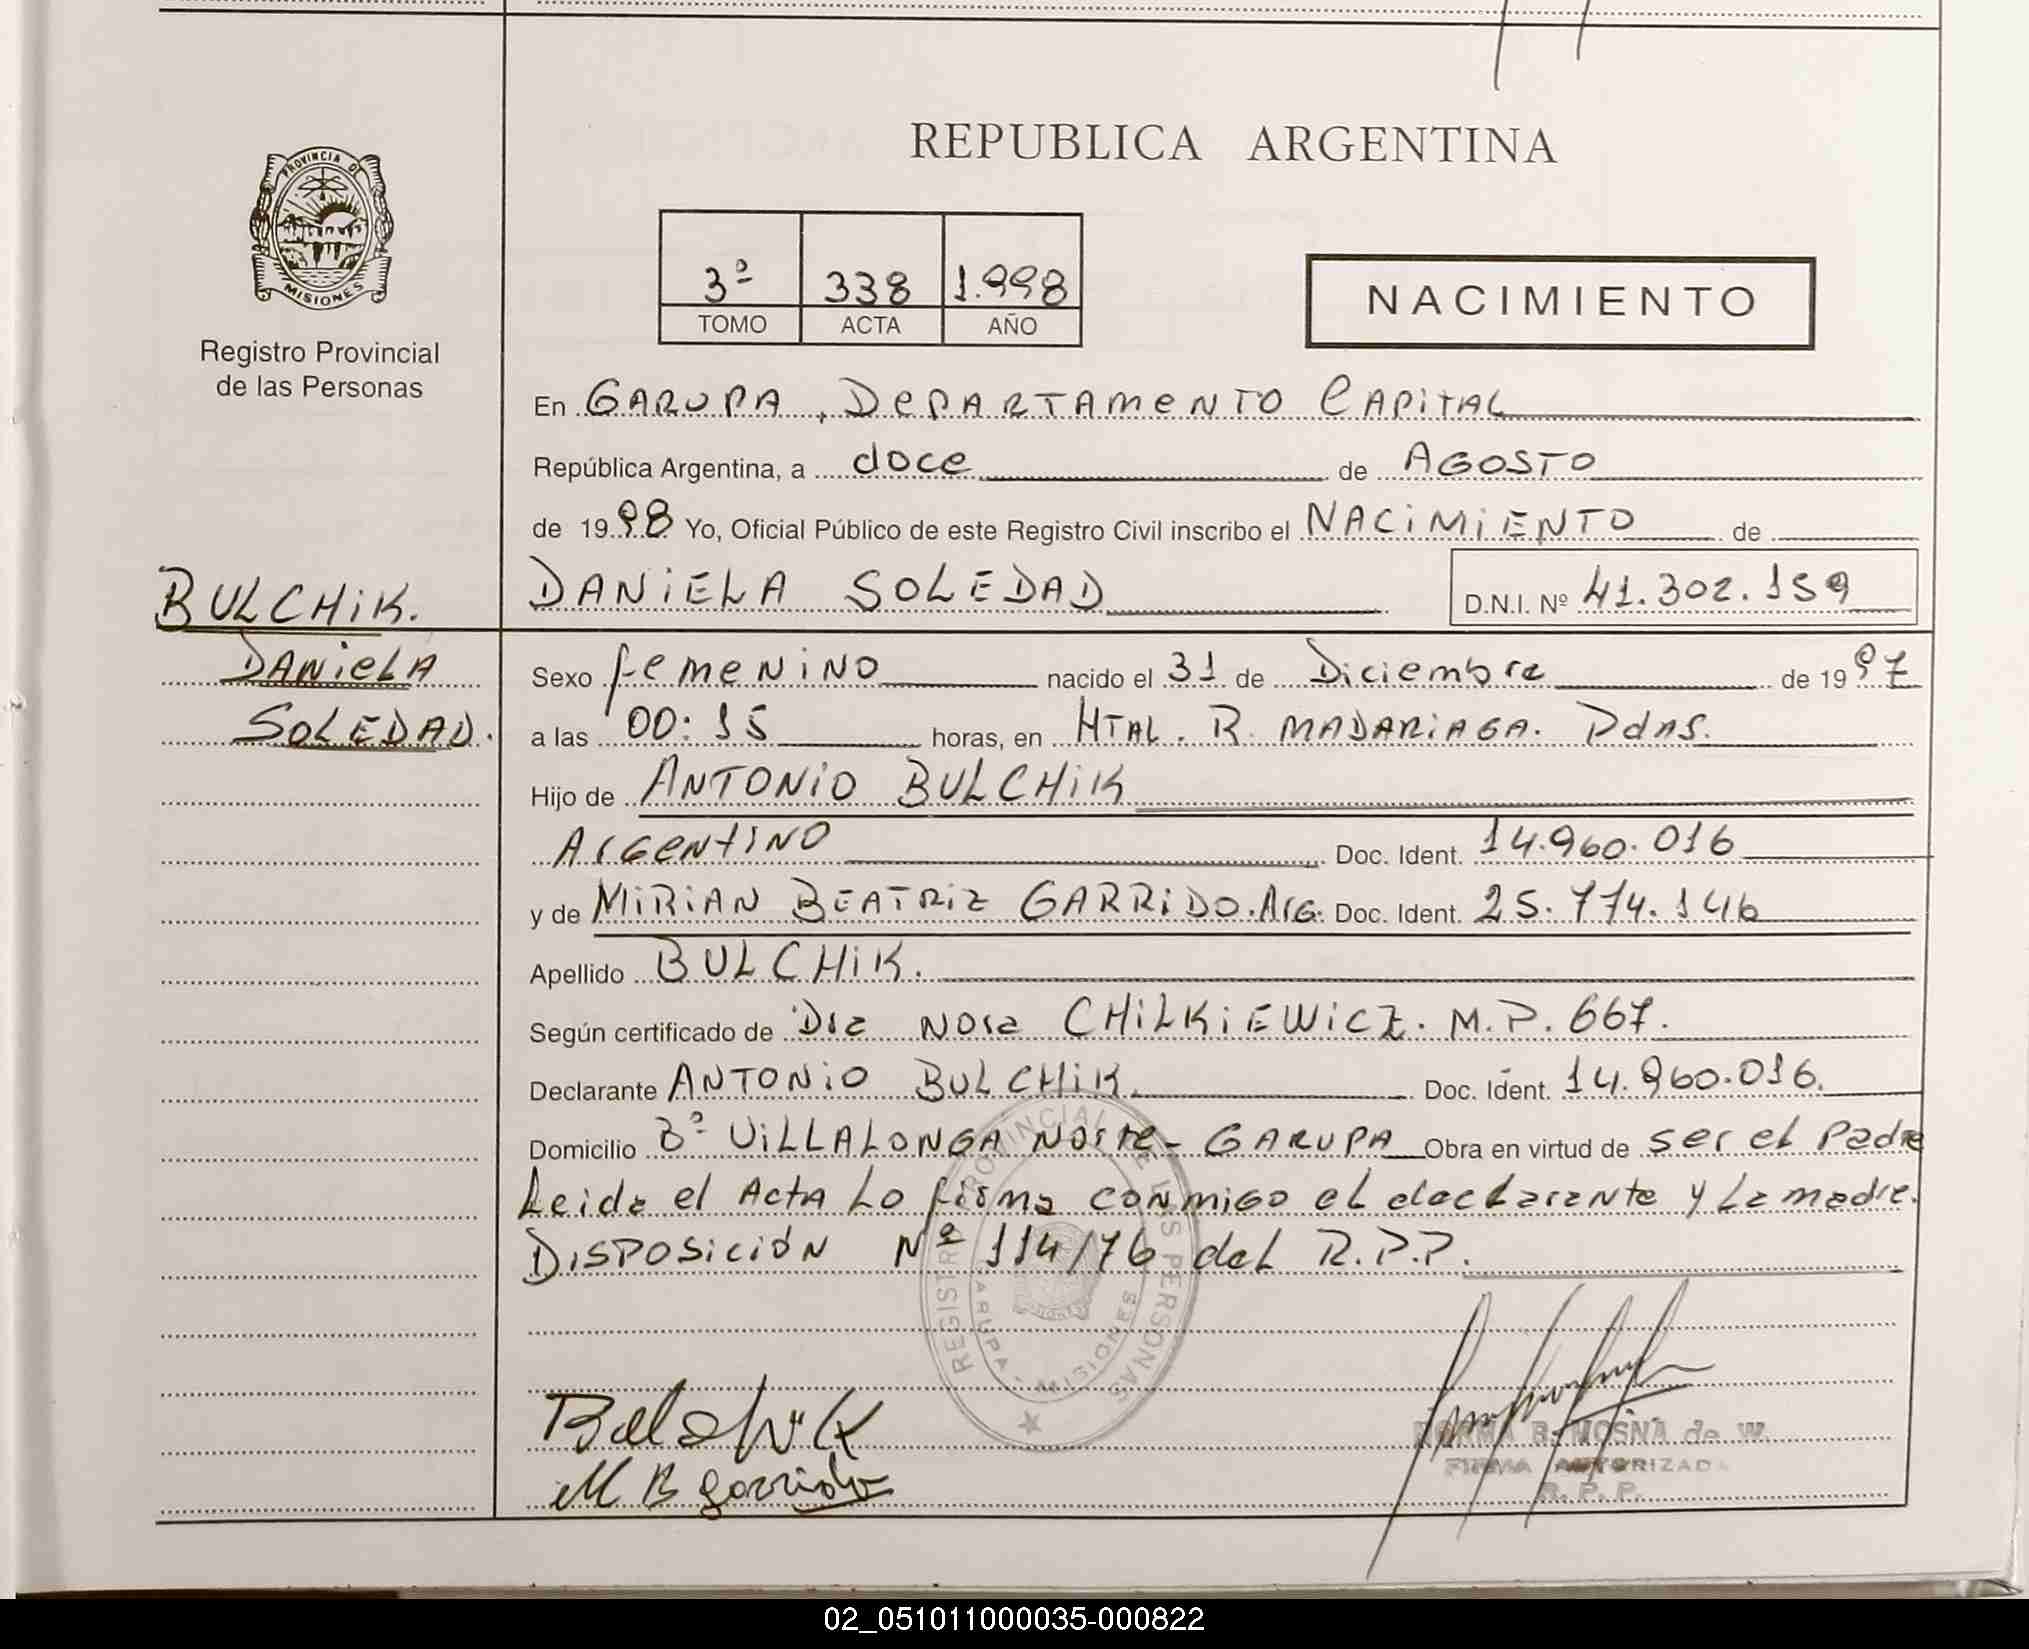 REPUBLICA ARGENTINA
PROVINCIA DE
MISIONES
Registro Provincial
de las Personas
3º 338 1.998
TOMO ACTA AÑO
NACIMIENTO
En GARUPA, DEPARTAMENTO CAPITAL
República Argentina, a doce de AGOSTO
de 1998 Yo, Oficial Público de este Registro Civil inscribo el NACIMIENTO de
DANIELA SOLEDAD D.N.I. Nº 41.302.159
BULCHIK.
DANIELA
SOLEDAD.
Sexo femenino nacido el 31 de Diciembre de 1997
a las 00:15 horas, en HTAL. R. MADARIAGA. Pdas.
Hijo de ANTONIO BULCHIK
Argentino Doc. Ident. 14.960.016
y de MIRIAN BEATRIZ GARRIDO. Arg. Doc. Ident. 25.774.146
Apellido BULCHIK.
Según certificado de Dra Nora CHILKIEWICZ. M.P. 667.
Declarante ANTONIO BULCHIK Doc. Ident. 14.960.016.
Domicilio Bº VILLALONGA Norte - GARUPA Obra en virtud de ser el Padre
Leida el Acta Lo firma conmigo el declarante y La madre.
DISPOSICIÓN Nº 114/76 del R.P.P.
REGISTRO PROVINCIAL DE LAS PERSONAS
GARUPA - MISIONES
Bulchik
M B Garrido
NORMA B. MOSNA de W.
FIRMA AUTORIZADA
R. P. P.
02_051011000035-000822